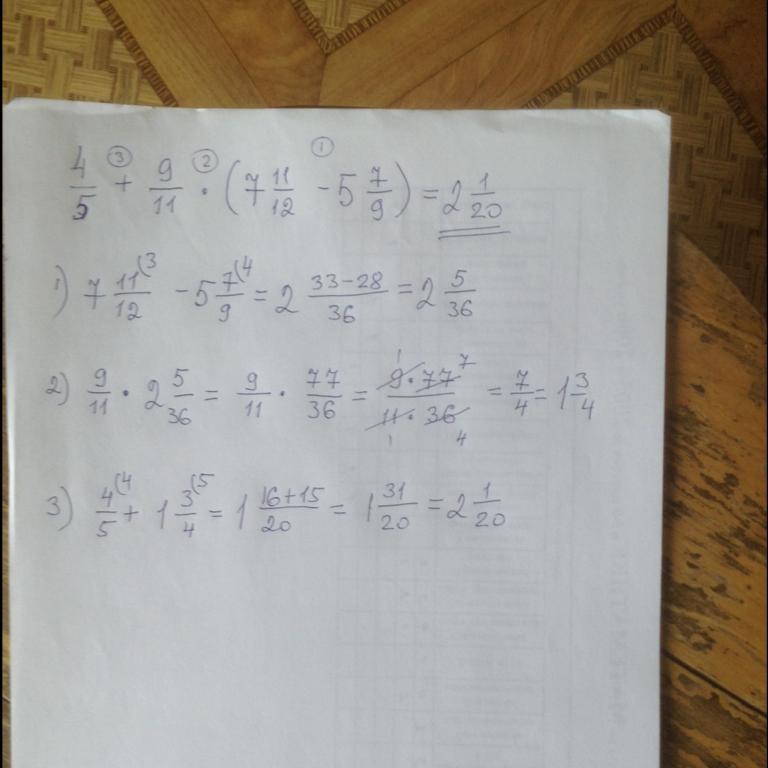 4/5 + 9/11 · (7 11/12 - 5 7/9) = 2 1/20 ③ ② ①
1) 7 11/12 (3 - 5 7/9 (4 = 2 33-28/36 = 2 5/36
2) 9/11 · 2 5/36 = 9/11 · 77/36 = 9·77/11·36 1 7 1 4 = 7/4 = 1 3/4
3) 4/5 (4 + 1 3/4 (5 = 1 16+15/20 = 1 31/20 = 2 1/20